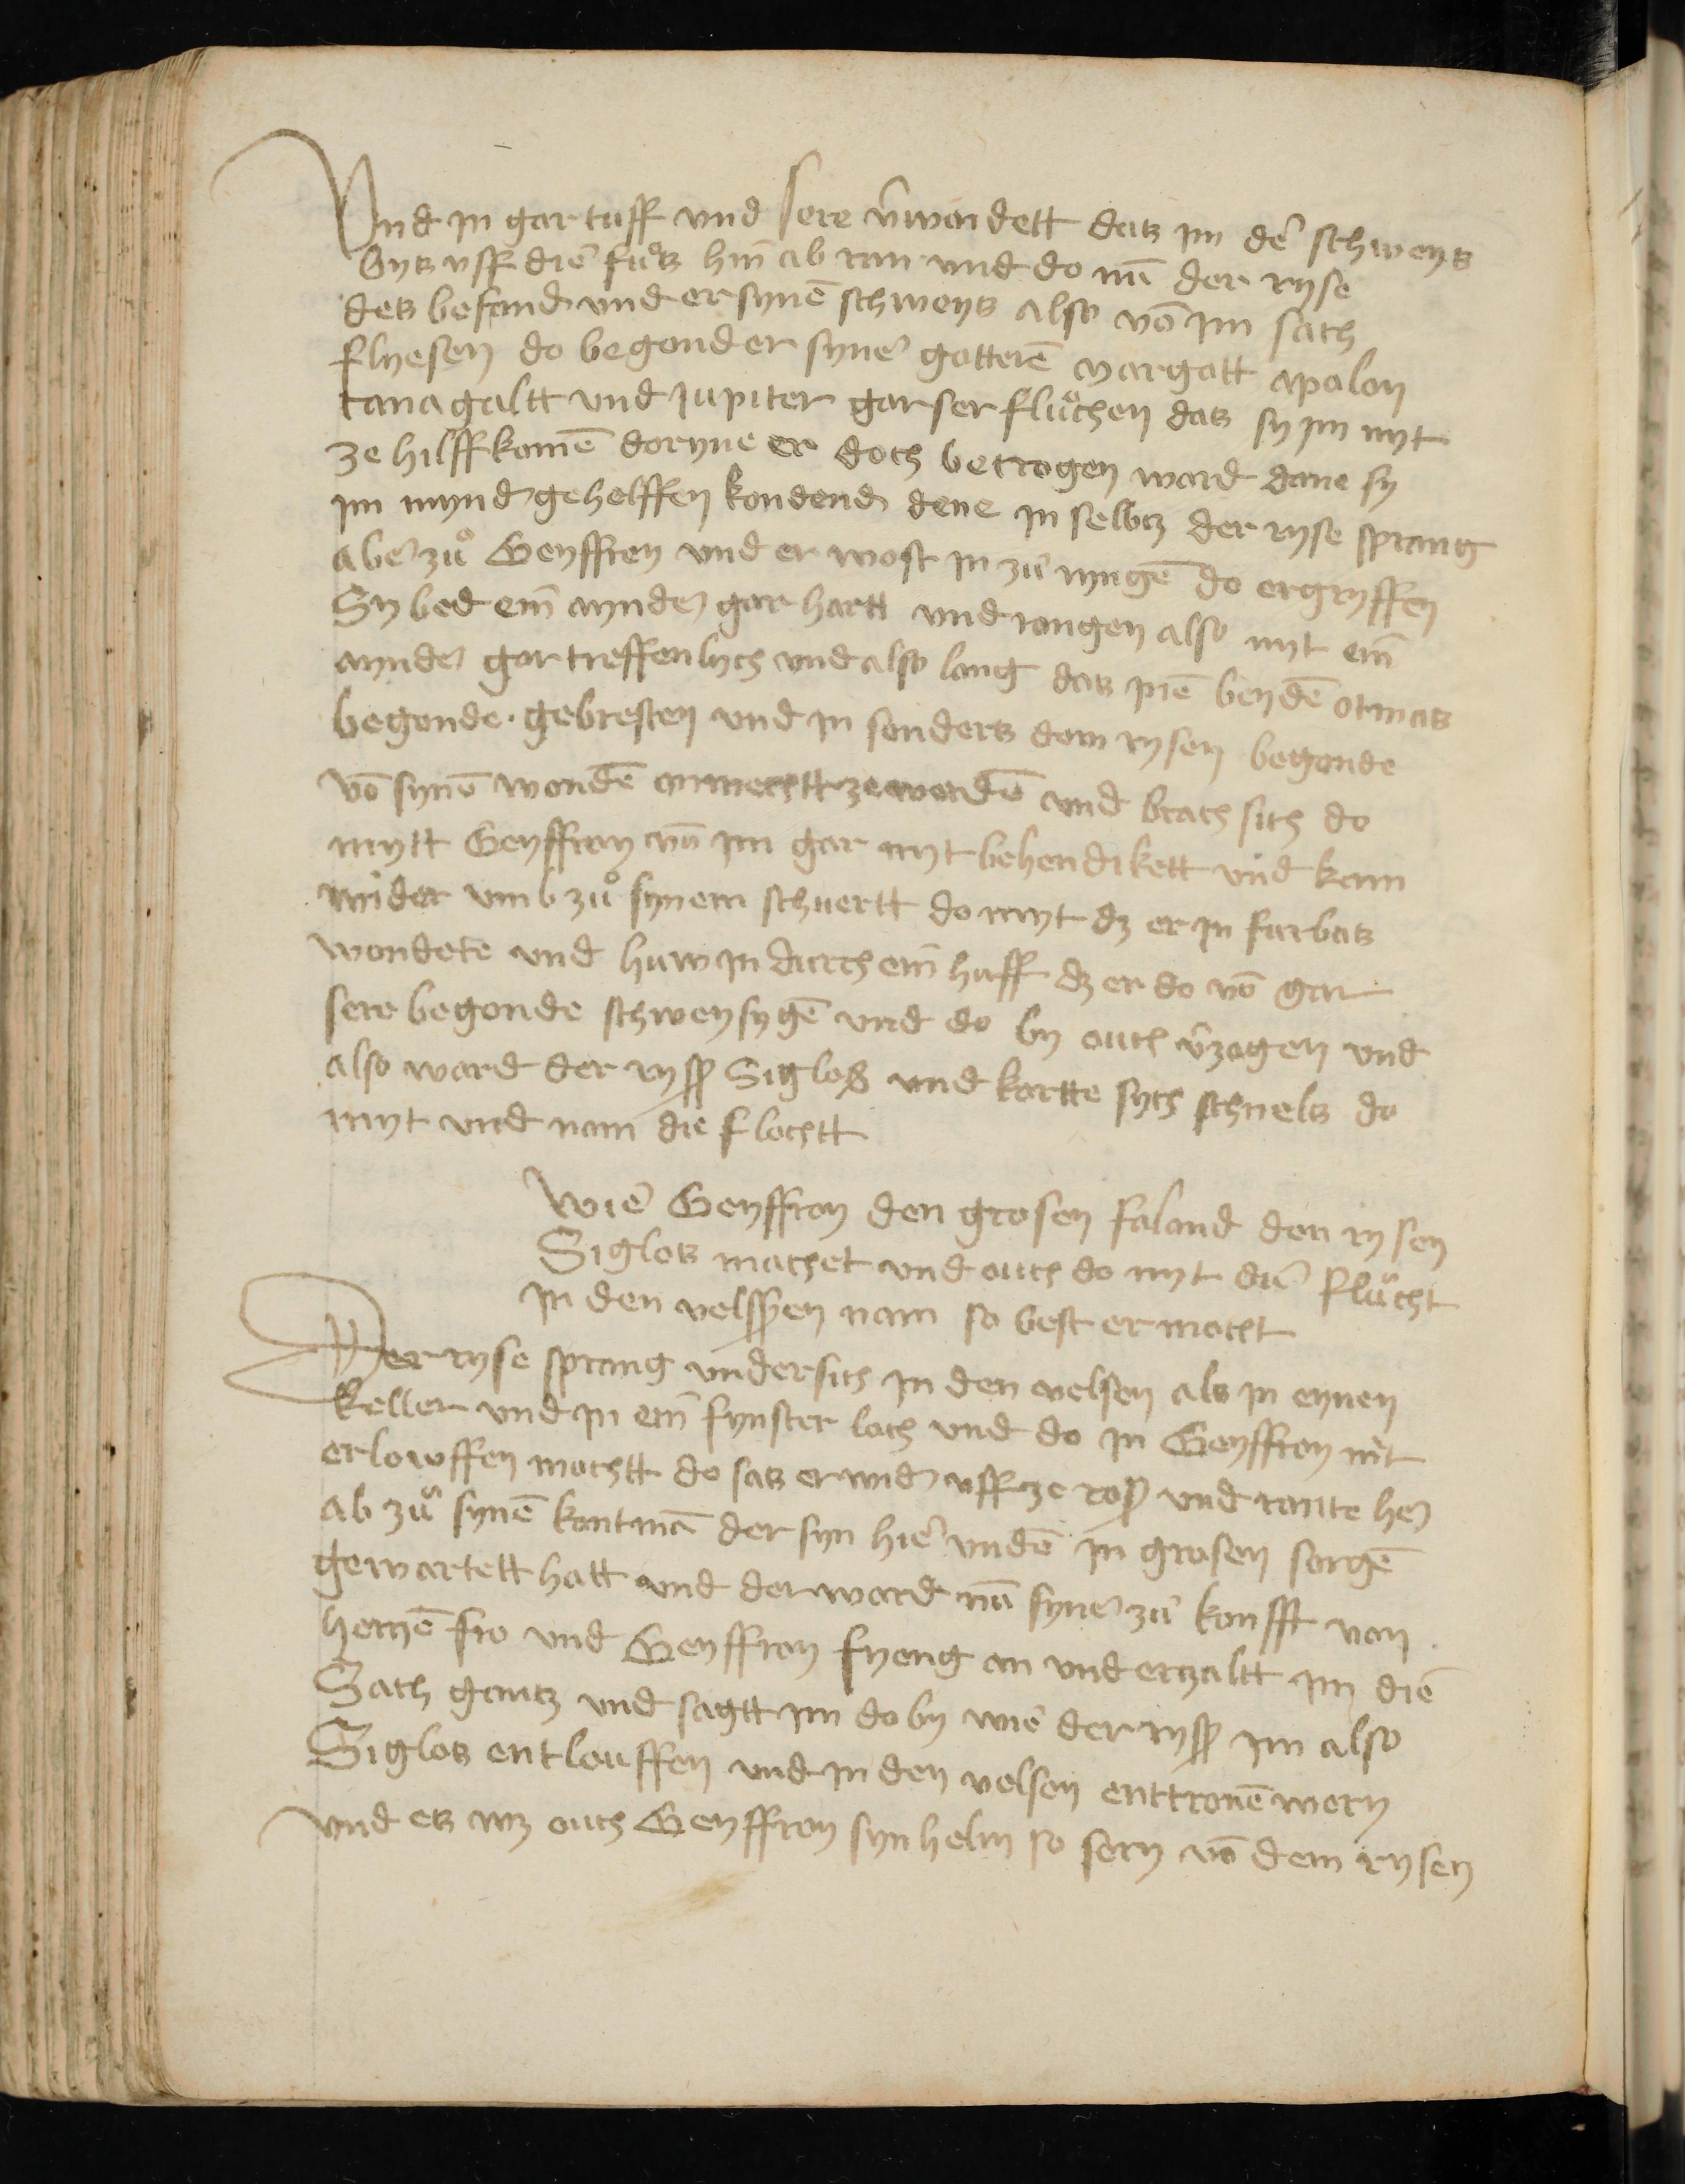 Und in gar tuff und sere v̄wondett das im de᷑ schweys
Bys uff die᷑ fuͦs hin̄ ab ran und do nū der ryse
des befand und er synē schweys also vō im sach
flyesen do begond er syne᷑ gotterē margott apalon
tanagaltt und Jupiter gar ser fluͦchen das sy im nyt
ze hilff komē doryne er doch betrogen ward dane sy
im nynd gehelffen kondend dene in selbz der ryse sprang
abe᷑ zuͦ Geyffren und er wost in zuͦ ryngē do ergryffen
Sy bed ein̄ aynder gar hartt und rongen also myt ein̄
aynder gar treffenlych und also lang das inē beyden otmas
begonde gebresten und in sonders dem rysen begonde
vō synē wondē onmechtt ze werdē und brach sich do
mytt Geyffroy vō im gar myt behendikett und kam
wider umb zuͦ synem schuertt do myt dz er in furbas
wondete und huw in durch ein̄ huff dz er do vō gar
sere begonde schweysygē und do by ouch v̄zagen und
also ward der ryse Siglos und kartte sych schnels do
myt und nam die flochtt
Wie᷑ Geyffroy den grosen faland den rysen
Siglos machet und ouch do myt die᷑ fluͦcht
in den velssen nam so best er mocht
Der ryse sprang undersich in den velsen als in eynen
keller und in ein̄ fynster loch und do in Geyffroy nit
erlowffen mochtt do sas er wider uff ze ross und rante her
ab zuͦ synē kontmā der syn hie᷑ undē in grosen sorgē
gewartett hatt und der ward nū syne᷑ zuͦ konfft von
herczē fro und Geyffroy fyeng an und erzaltt im die᷑
Sach gantz und sagtt im do by wie᷑ der ryse im also
Siglos entlouffen und in den velsen enttronē wery
und es wz ouch Geyffroy syn helm so sery vō dem rysen